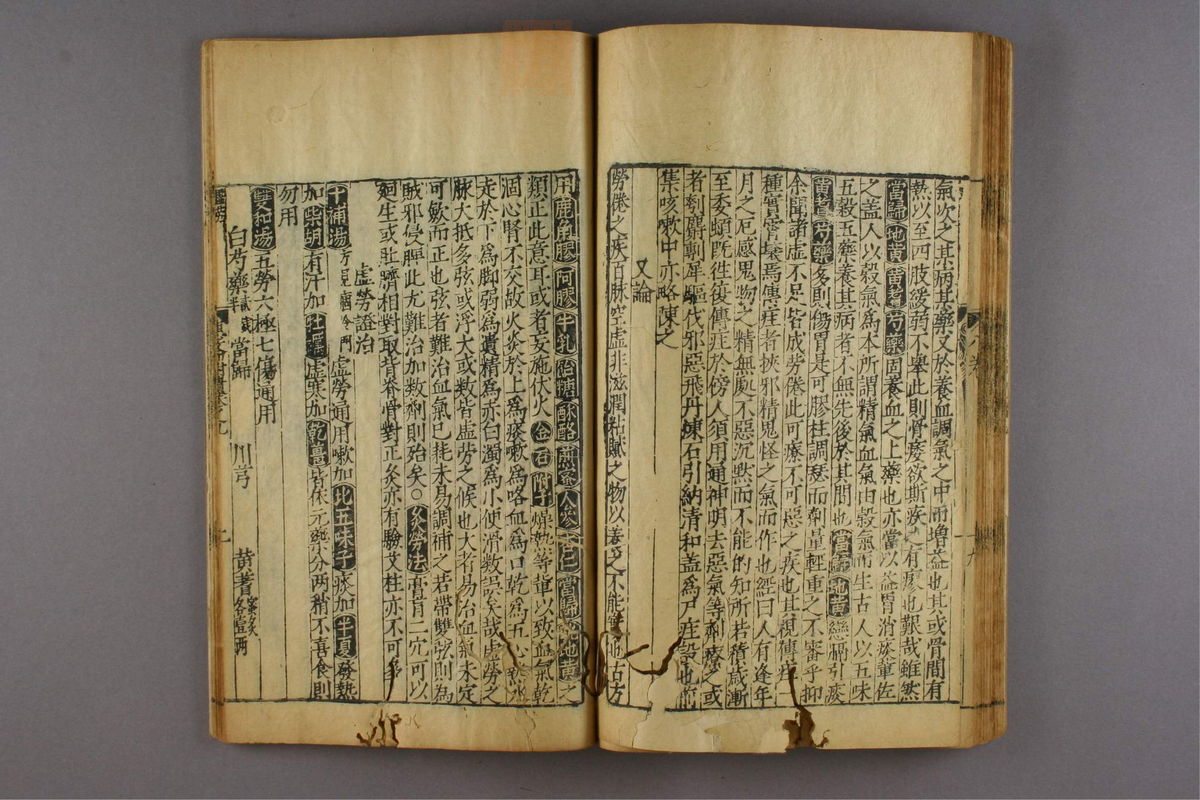 氣次之其病其藥又於養血調氣之中而增益也其或骨間有
熱以至四肢緩弱不舉此則骨痿欲斯疾有瘳也艱哉雖然
當歸地黃黃耆芍藥固養血之上藥也亦當以益胃消痰輩佐
之蓋人以穀氣為本所謂精氣血氣由穀氣而生古人以五味
五穀五藥養其病者不無先後於其間也當歸地黃纏膈引痰
黃耆芍藥多則傷胃是可膠柱調瑟而劑量輕重之不審乎抑
余聞諸虛不足皆成勞倦此可療不可惡之疾也其視傳疰一
種實霄壤焉傳疰者挾邪精鬼怪之氣而作也經曰人有逢年
月之厄感鬼物之精無處不惡沉默而不能的知所若積歲漸
至委頓既往復傳疰於傍人須用通神明去惡氣等劑療之或
者刳麝剸犀驅伐邪惡飛丹煉石引納清和蓋為尸疰設也前
集咳嗽中亦略陳之
又論
勞倦之疾百脉空虛非滋潤粘膩之物以養之不能 也古方
用鹿角膠阿膠牛乳飴糖酥酪煎蜜人參杏仁當歸地黃之
類正此意耳或者妄施伏火金石附子燥熱等輩以致血氣乾
涸心腎不交故火炎於上為痰嗽為咯血為口乾為五心熱水
走於下為脚弱為遺精為赤白濁為小便滑數誤矣哉虛勞之
脉大抵多弦或浮大或數皆虛勞之候也大者易治血氣未定
可斂而正也弦者難治血氣已耗未易調補之若帶雙弦則為
賊邪侵脾此尤難治加數劑則殆矣○灸勞法膏肓二穴可以
廻生或肚臍相對取背脊骨對正灸亦有驗艾炷亦不可多
虛勞證治
十補湯方見痼冷門虛勞通用嗽加北五味子痰加半夏發熱
加柴胡有汗加牡蠣虛寒加乾薑皆依元藥分兩稍不喜食則
勿用
雙和湯五勞六極七傷通用
白芍藥貳兩半 當歸 川芎 黃耆蜜炙各壹兩